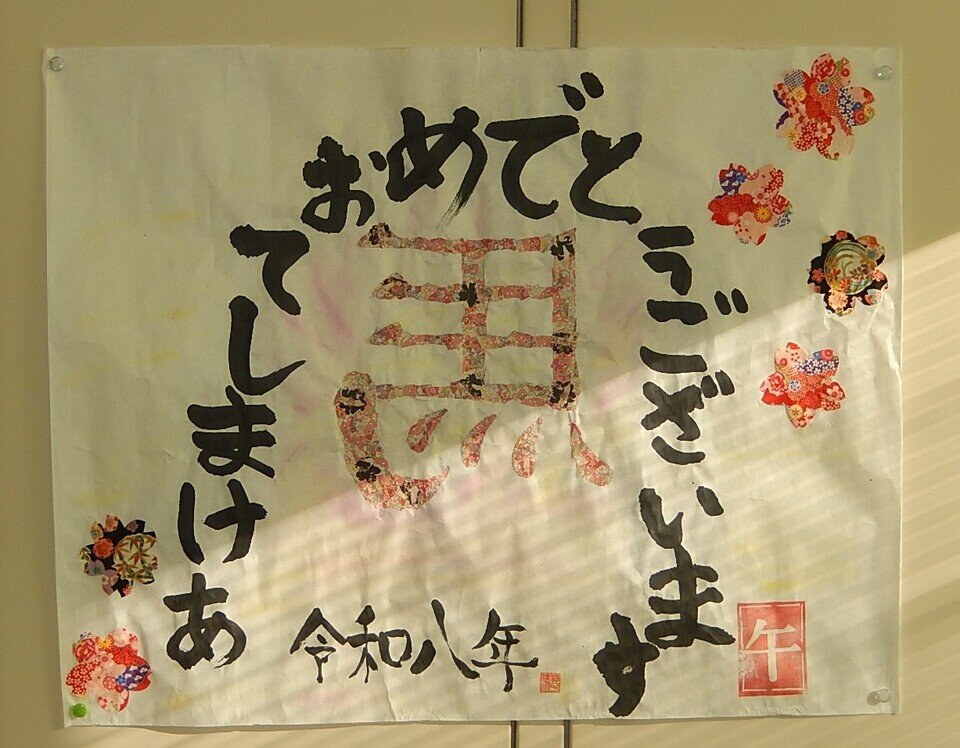 あけましておめでとうございます
馬
令和八年
午